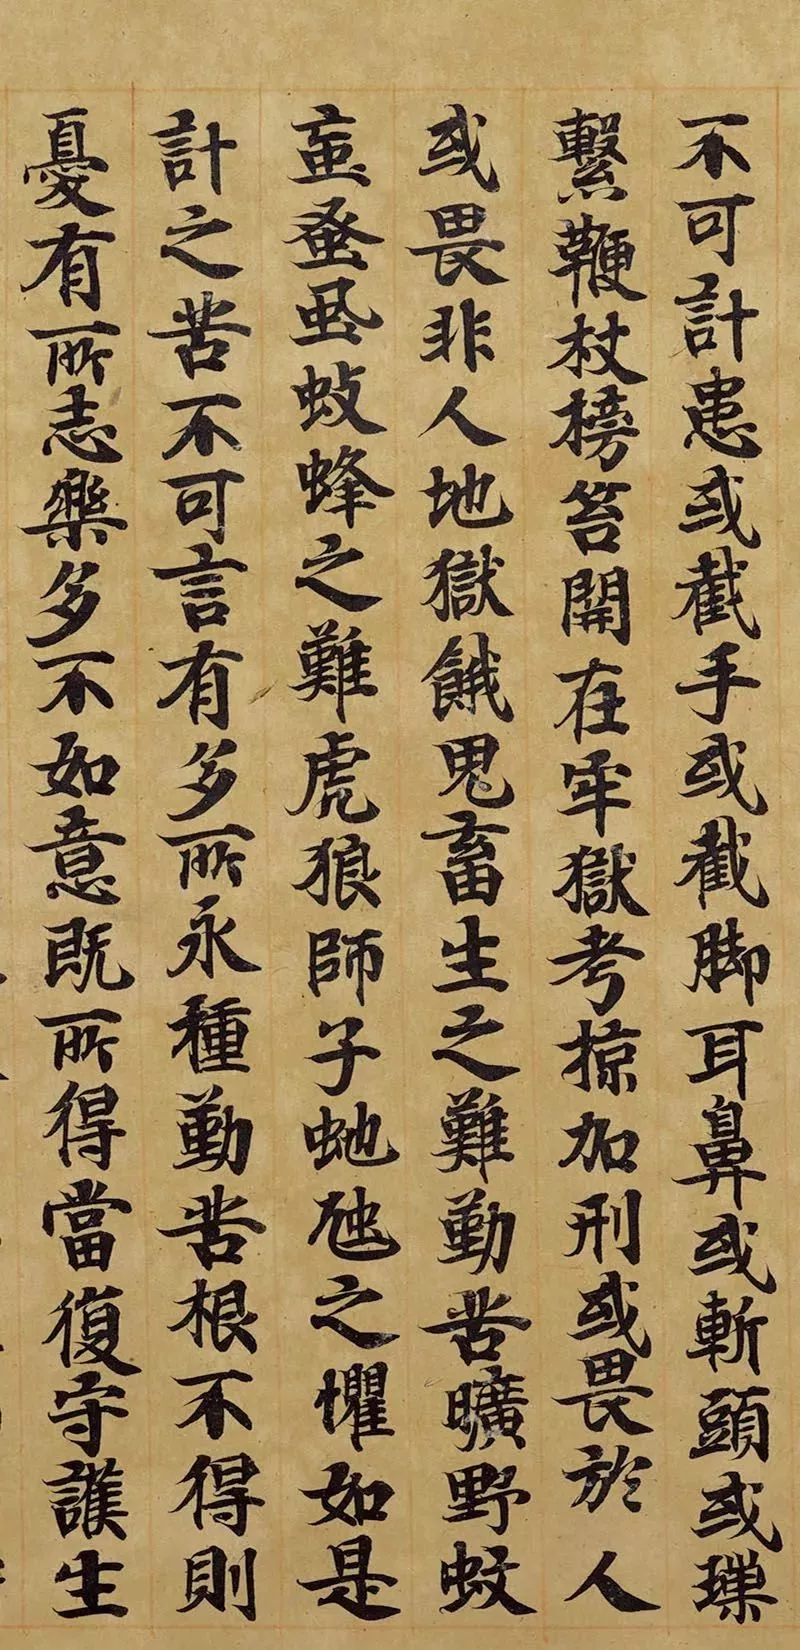 不可計患或截手或截脚耳鼻或斬頭或鏁
繫鞭杖榜笞閞在牢獄考掠加刑或畏於人
或畏非人地獄餓鬼畜生之難勤苦曠野蚊
䖟蚤虱蚑蜂之難虎狼師子虵虺之懼如是
計之苦不可言有多所永種勤苦根不得則
憂有所志樂多不如意既所得當復守護生